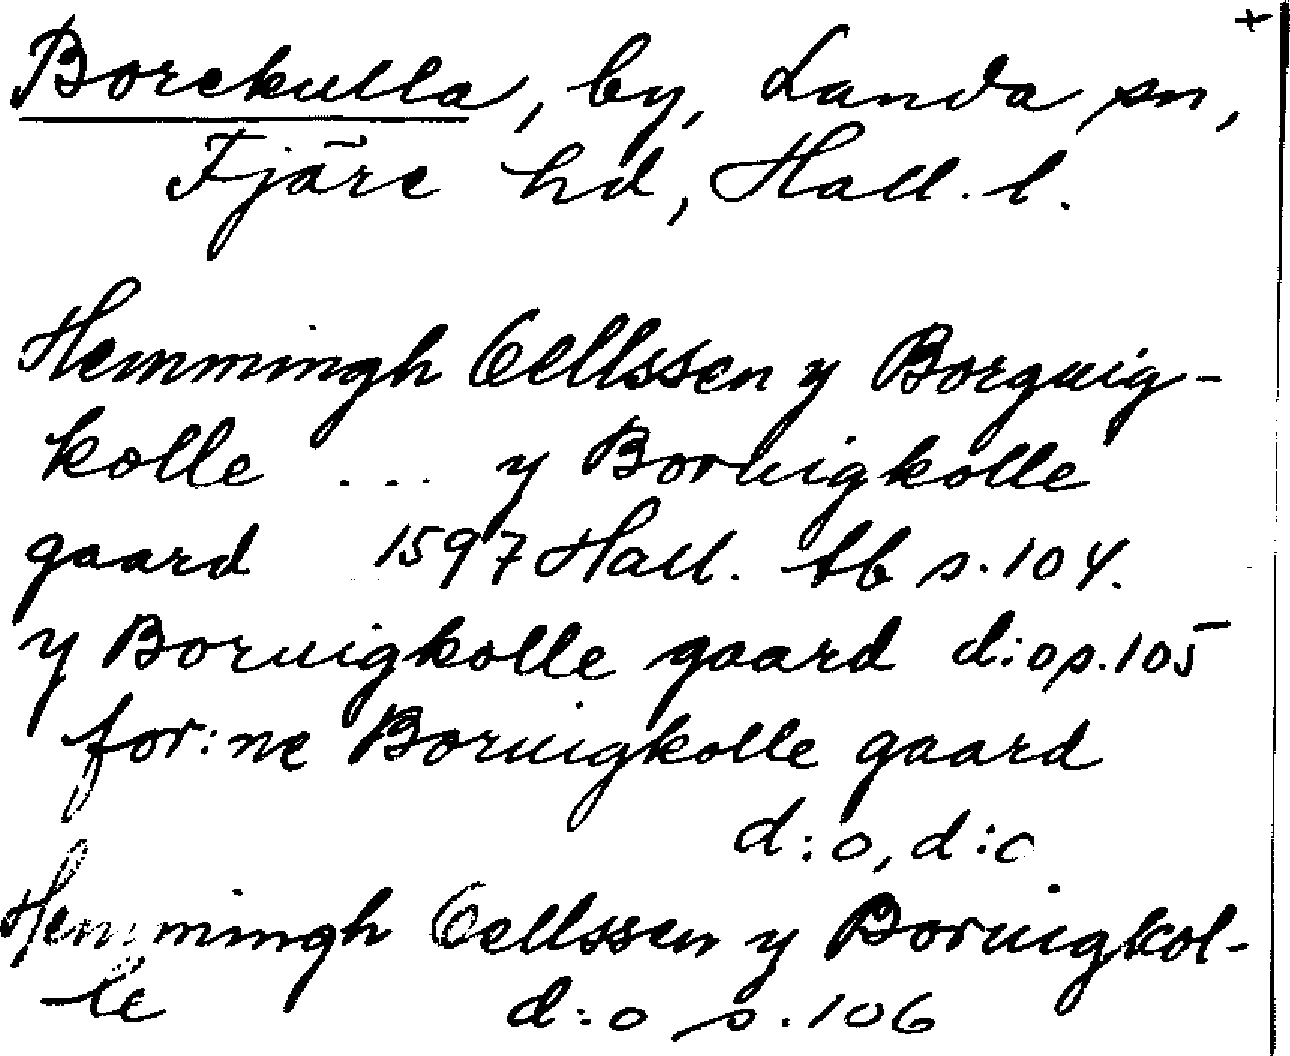 +
Borekulla, by, Landa sn,
Fjäre hd, Hall. l.
Hemmingh Oellssen y Borguig-
kolle ... y Boruigkolle
gaard 1597 Hall. tb s. 104.
y Boruigkolle gaard d:o s. 105
for:ne Boruigkolle gaard
d:o, d:o
Hemmingh Oellssen y Boruigkol-
le d:o s. 106